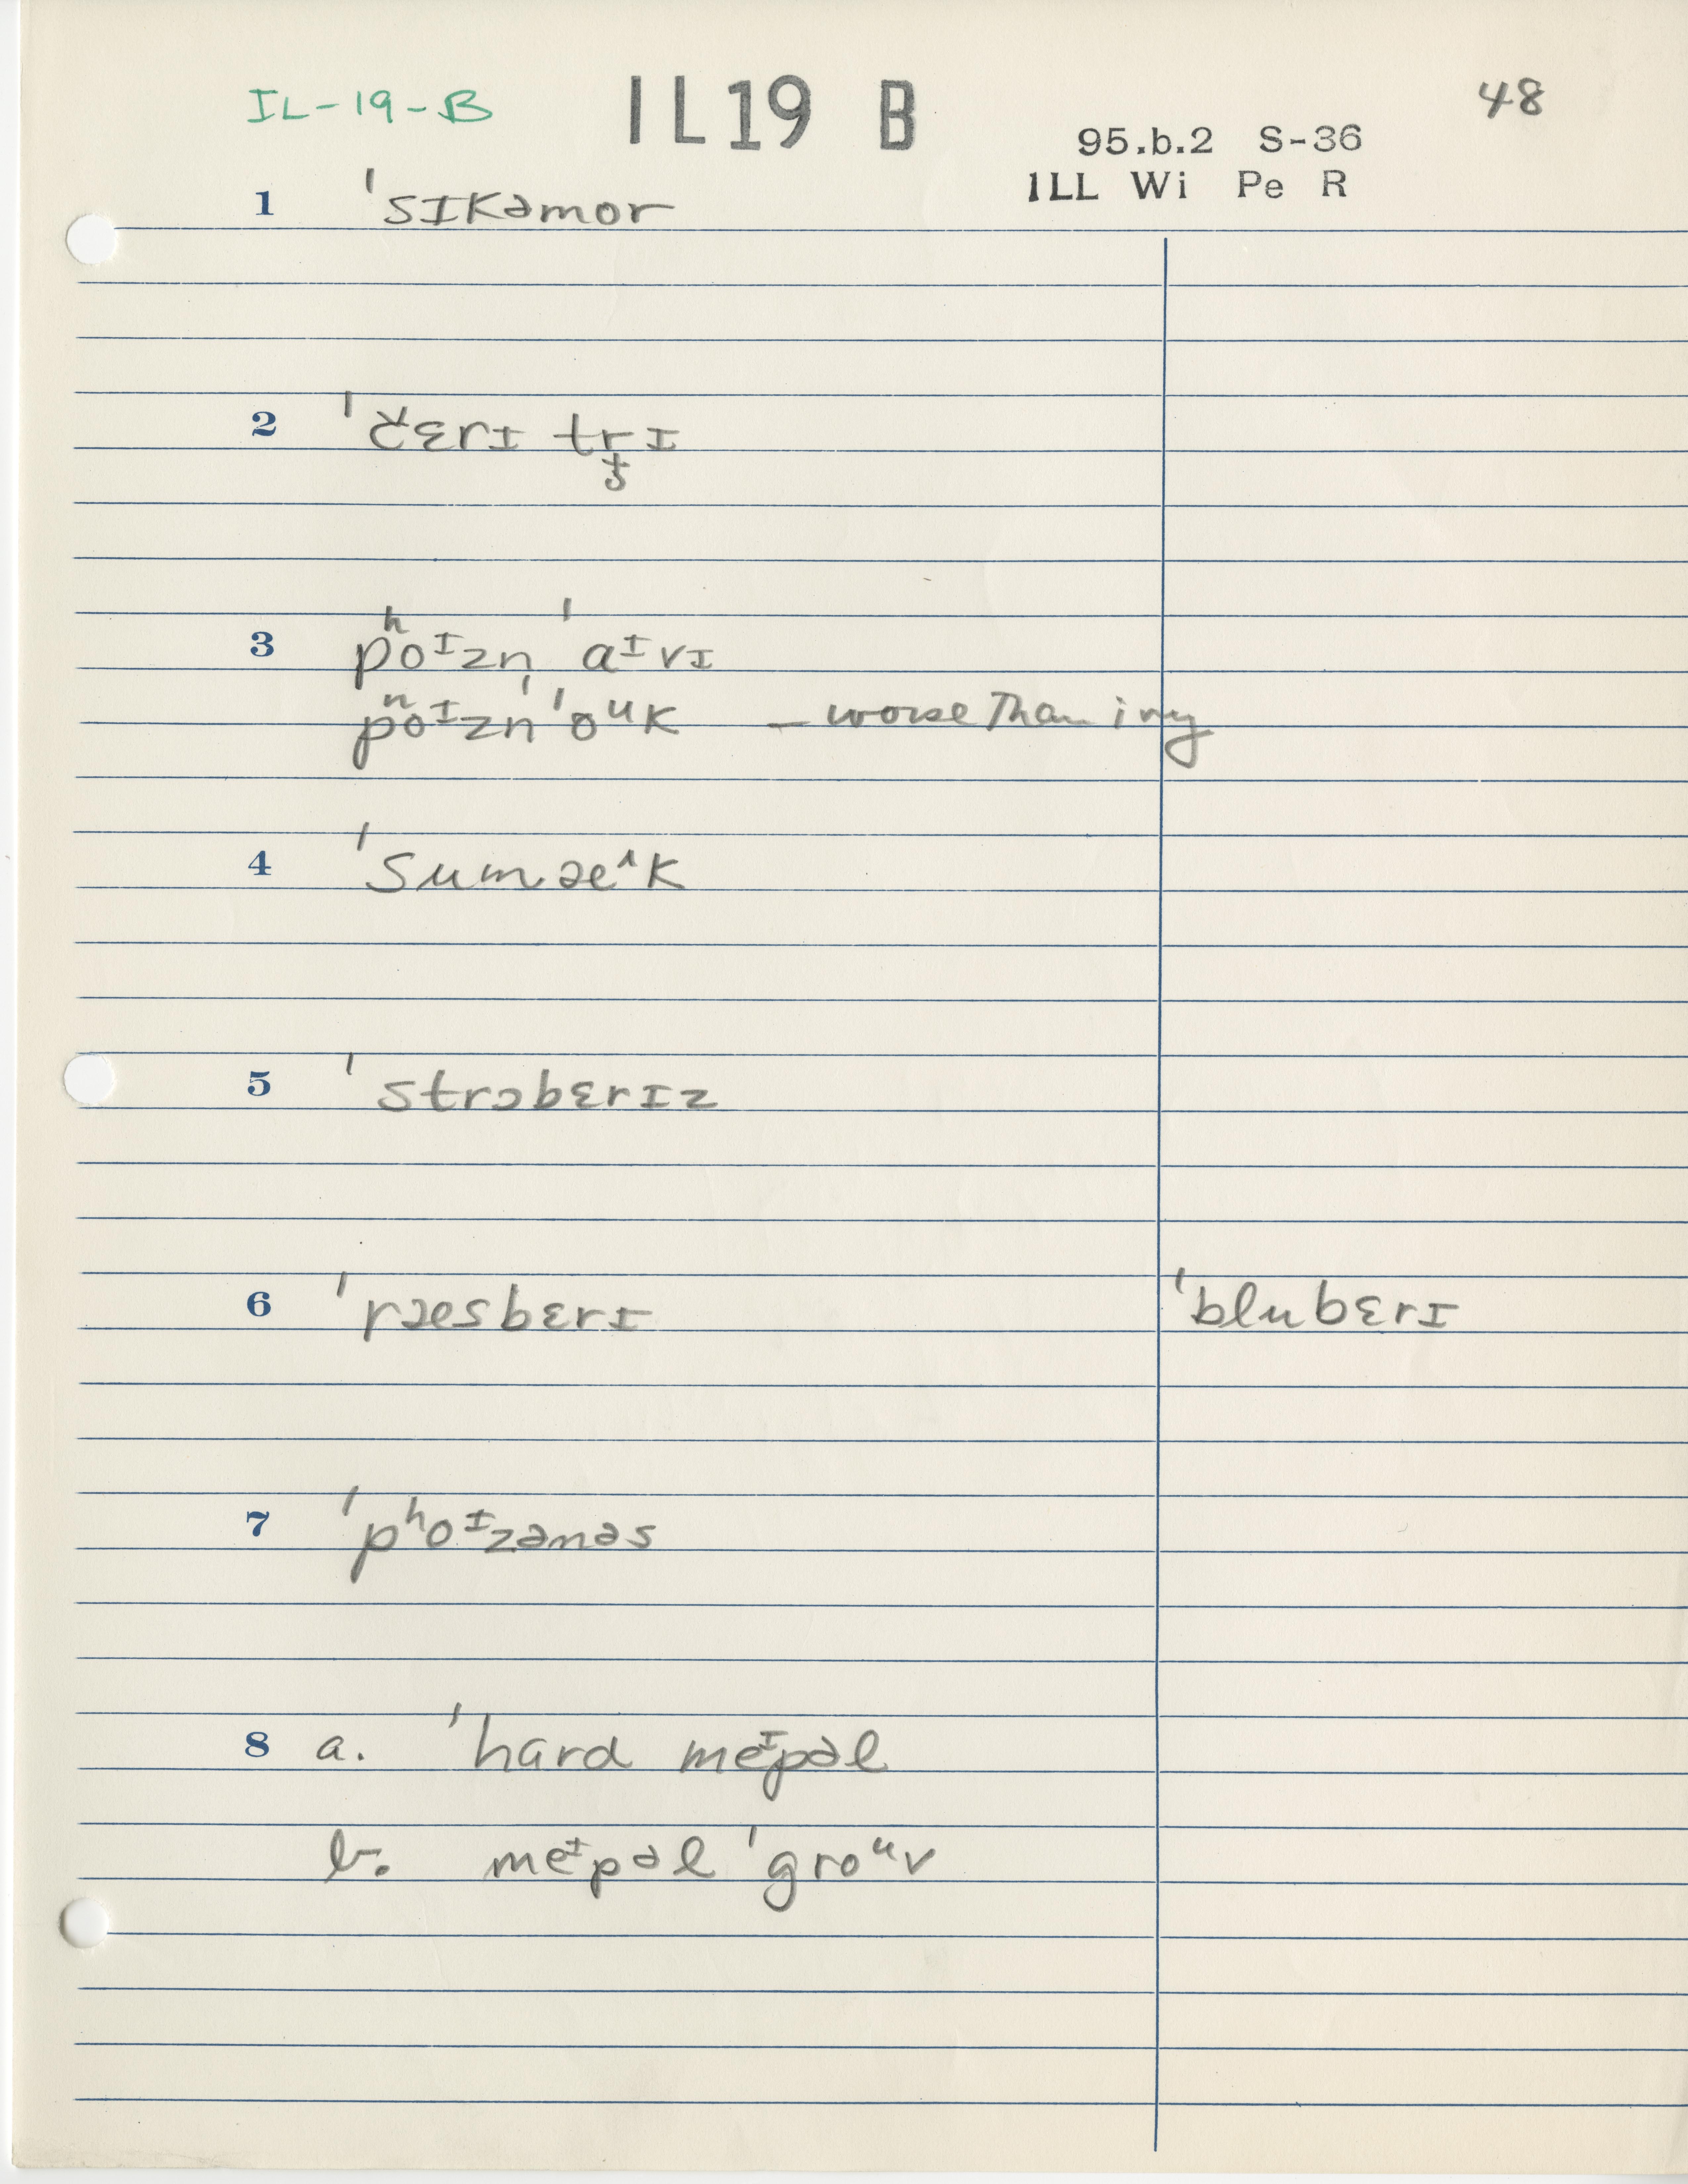 IL-19-B IL19 B 48
95.b.2 S-36
ILL Wi Pe R
1 ˈsɪkəmor
2 ˈčɛrɪ tř̯ɪ
3 pʰoᶦzn̩ ˈaᶦvɪ
pʰoᶦzn̩ ˈoᵘk – worse than ivy
4 ˈsumæ^k
5 ˈstrɔbɛrɪz
6 ˈræsbɛrɪ ˈblubɛrɪ
7 ˈpʰoᶦzənəs
8 a. ˈhard meᶦpəl
b. meᶦpəl ˈgroᵘv